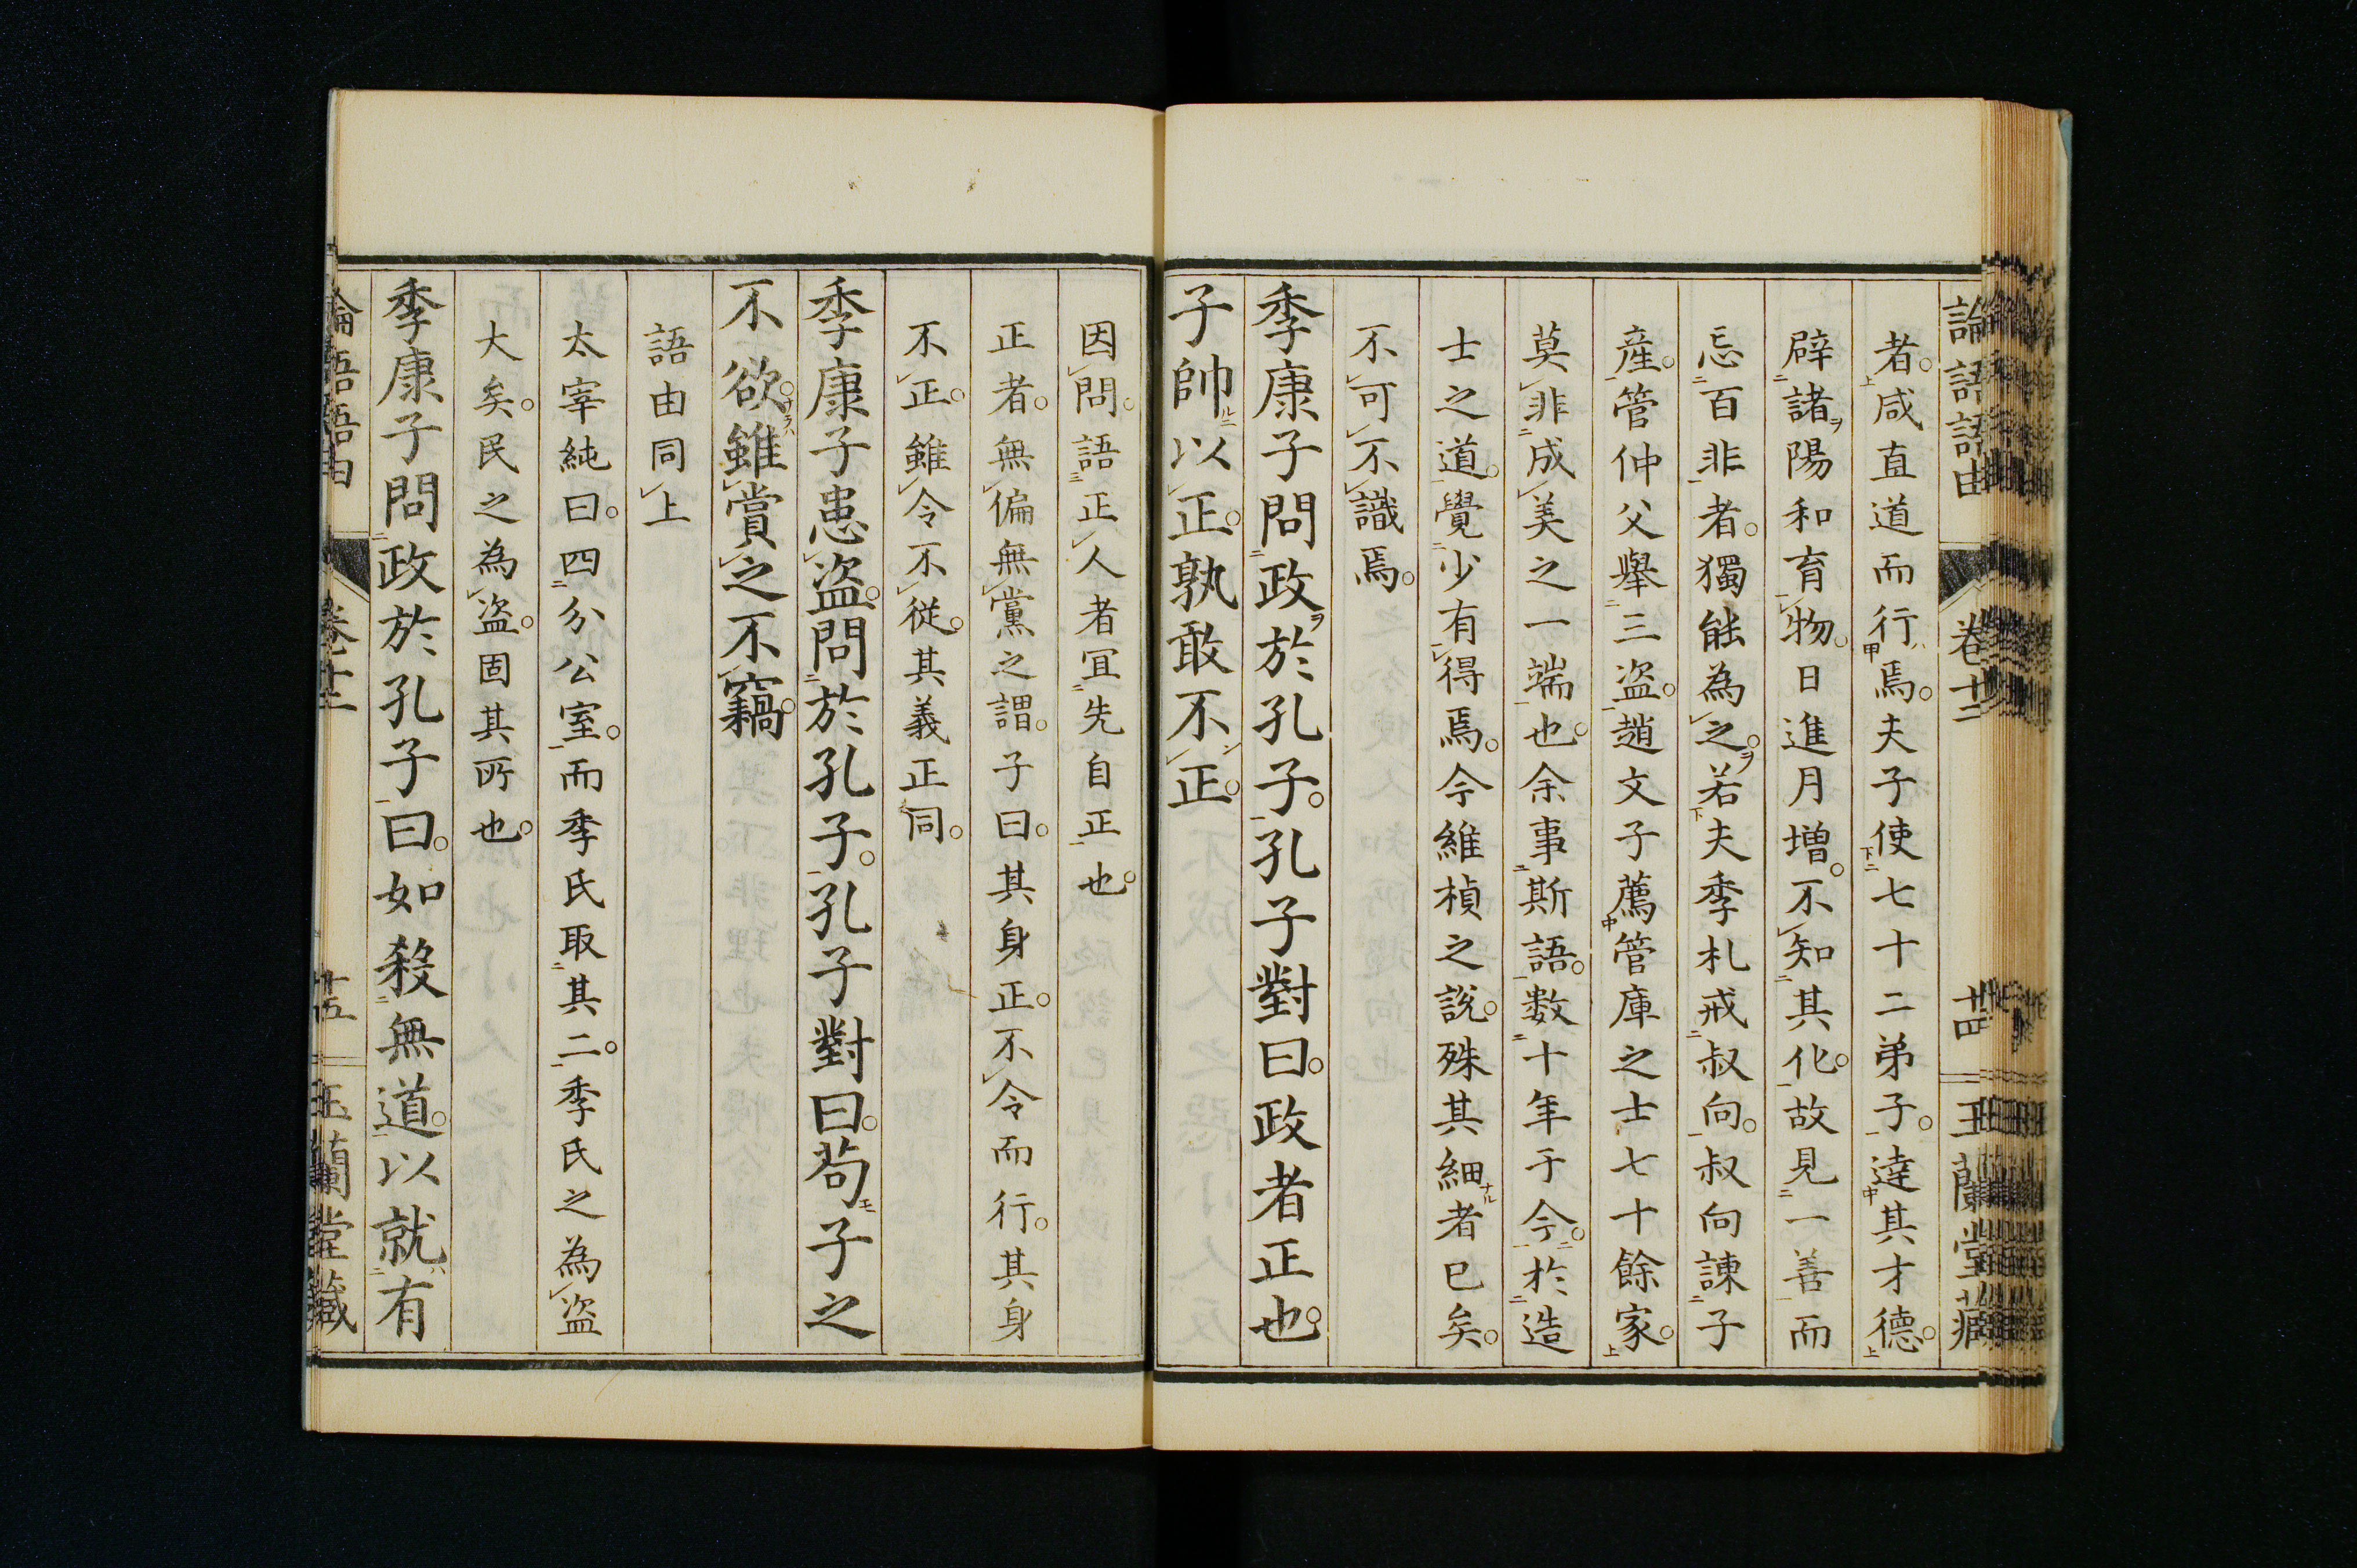 論語語由 卷十二 十四 玉蘭堂藏
者。咸直道而行焉。夫子使七十二弟子。達其才德。
辟諸陽和育物。日進月增。不知其化。故見一善而
忘百非者。獨能為之。若夫季札戒叔向。叔向諫子
産。管仲父舉三盗。趙文子薦管庫之士七十餘家。
莫非成美之一端也。余事斯語。数十年于今。於造
士之道。覺少有得焉。今維楨之說。殊其細者已矣。
不可不識焉。
季康子問政於孔子。孔子對曰。政者正也。
子帥以正。孰敢不正。
因問。語正人者宜先自正也。
正者。無偏無黨之謂。子曰。其身正。不令而行。其身
不正。雖令不從。其義正同。
季康子患盗。問於孔子。孔子對曰。苟子之
不欲。雖賞之不竊。
語由同上
太宰純曰。四分公室。而季氏取其二。季氏之為盗
大矣。民之為盗。固其所也。
季康子問政於孔子曰。如殺無道。以就有
論語語由 卷十二 十五 玉蘭堂藏